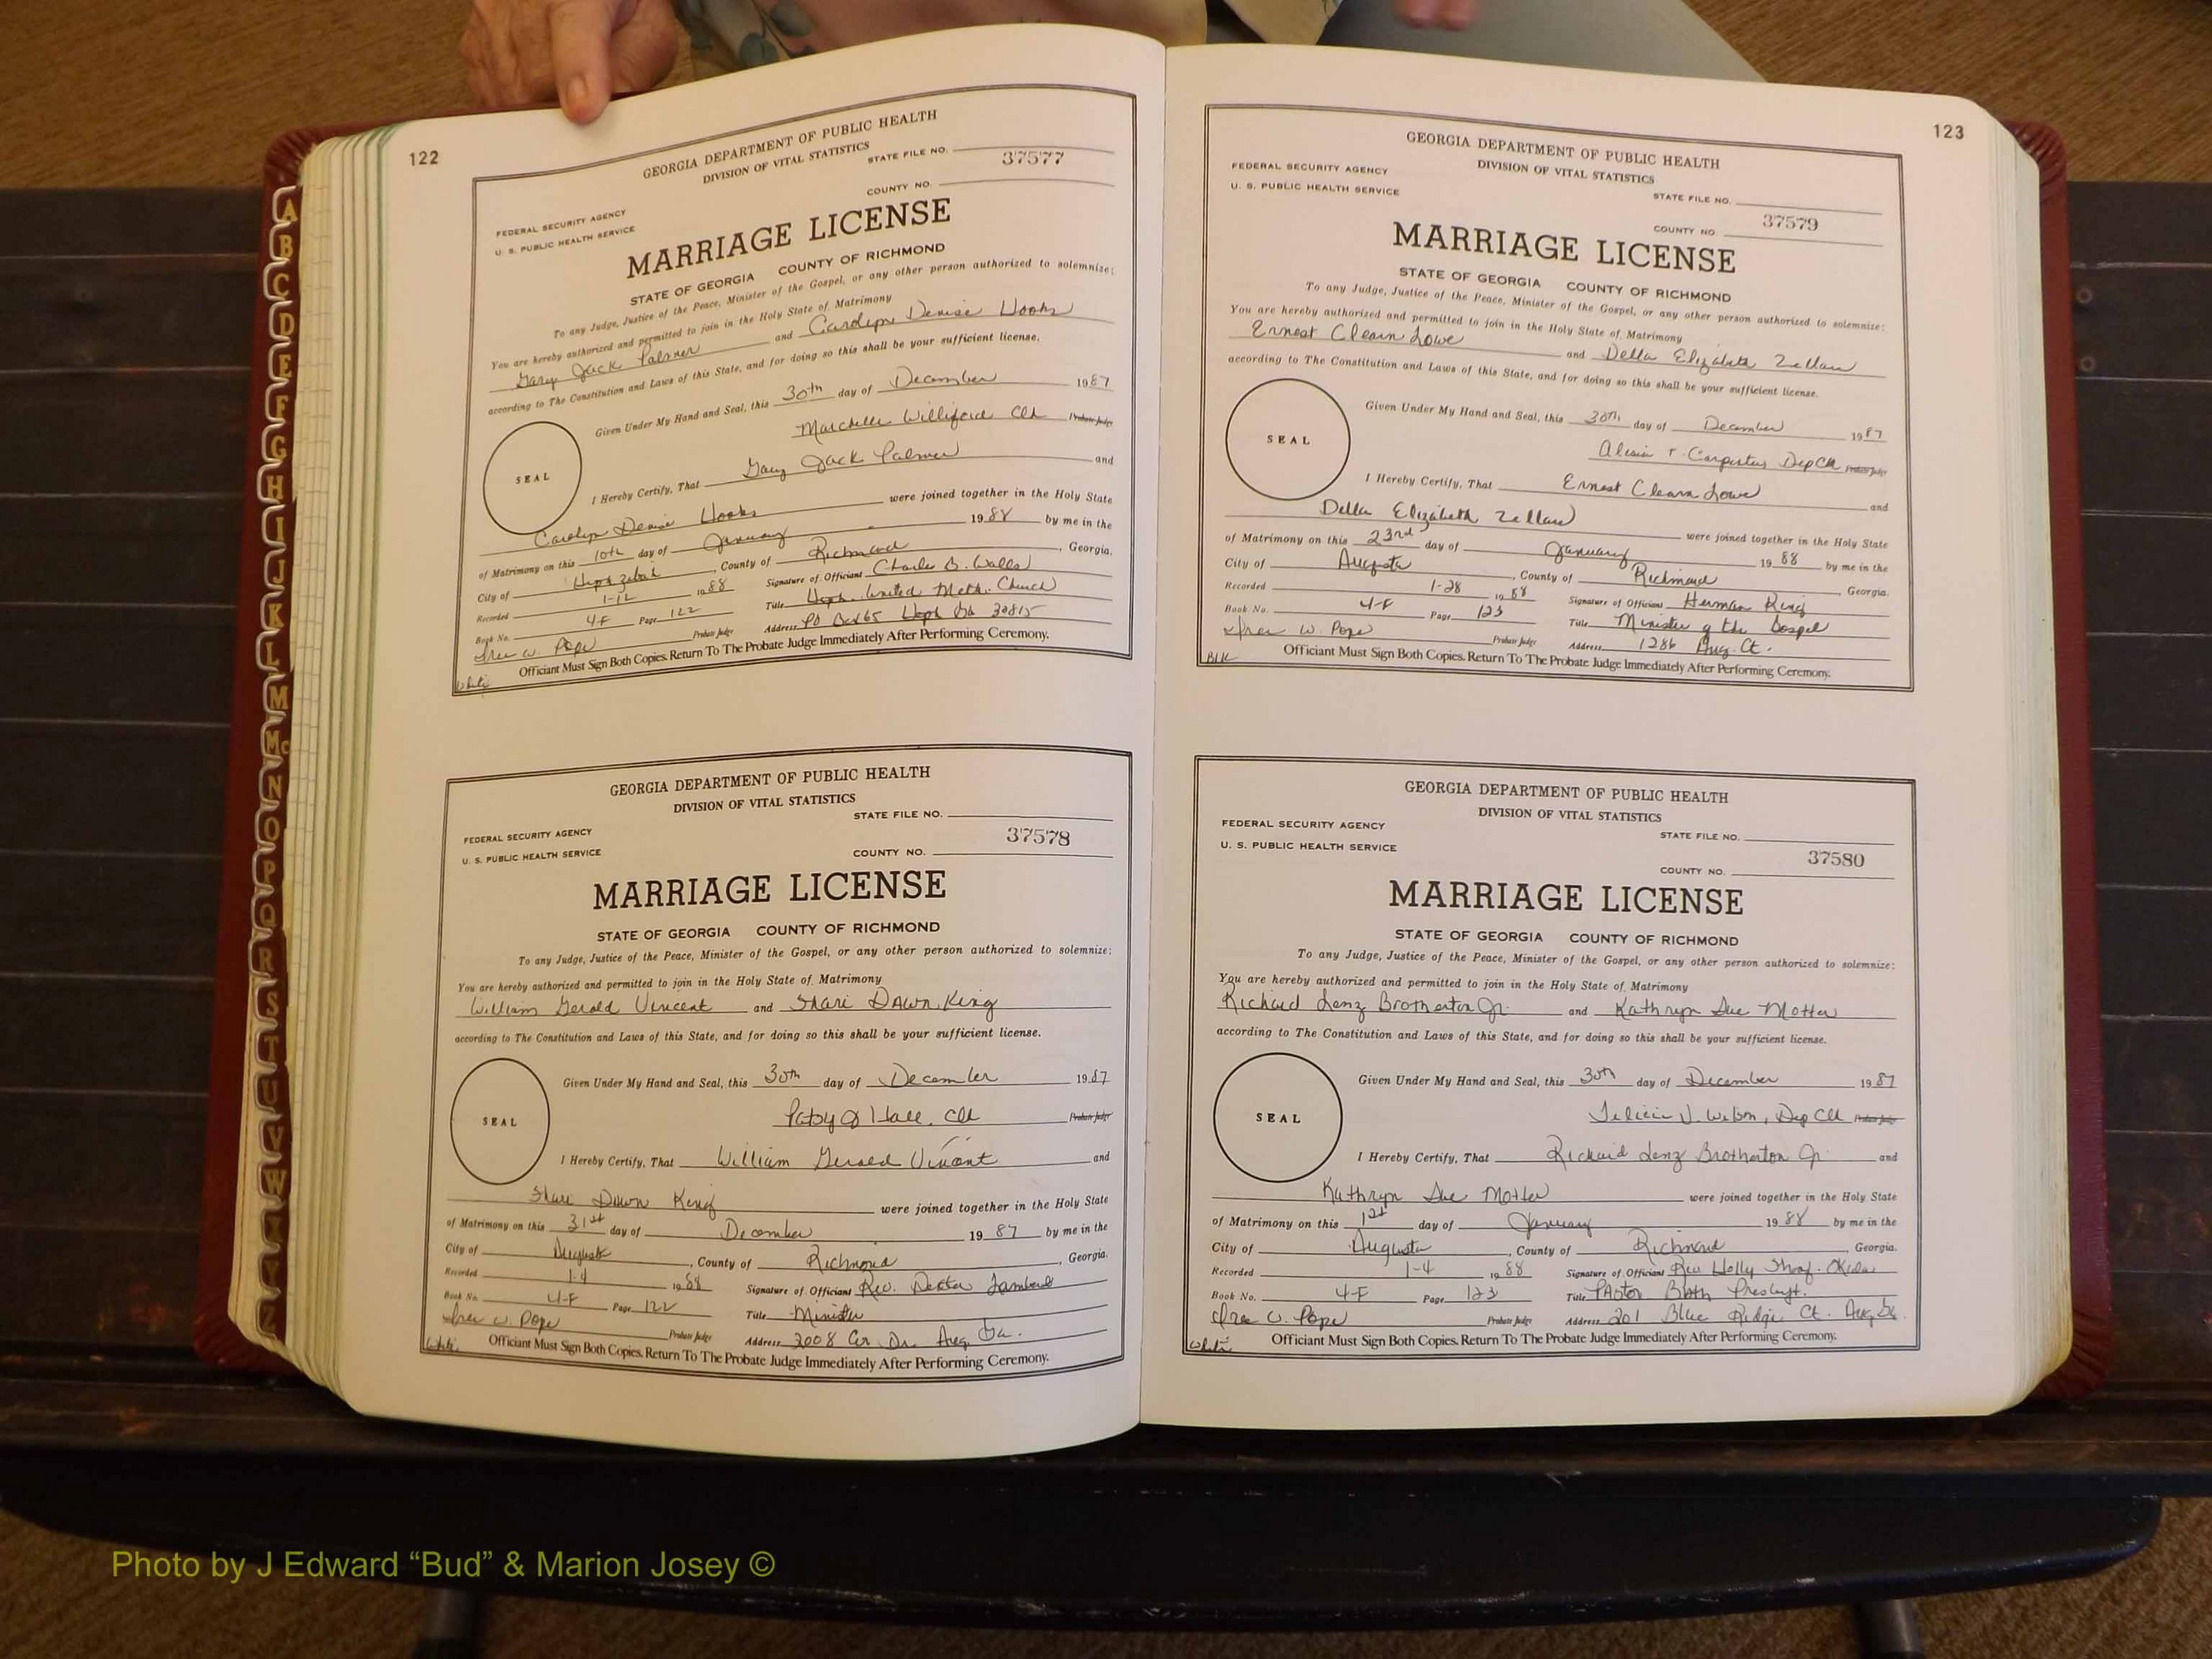 122
GEORGIA DEPARTMENT OF PUBLIC HEALTH
DIVISION OF VITAL STATISTICS
STATE FILE NO.
37577
COUNTY NO.
FEDERAL SECURITY AGENCY
U. S. PUBLIC HEALTH SERVICE
MARRIAGE LICENSE
STATE OF GEORGIA COUNTY OF RICHMOND
To any Judge, Justice of the Peace, Minister of the Gospel, or any other person authorized to solemnize:
You are hereby authorized and permitted to join in the Holy State of Matrimony
Gary Jack Palmer and Carolyn Denise Hooks
according to The Constitution and Laws of this State, and for doing so this shall be your sufficient license.
Given Under My Hand and Seal, this 30th day of December 1987
Marchelle Williford Clk Probate Judge
SEAL
I Hereby Certify, That Gary Jack Palmer and
Carolyn Denise Hooks were joined together in the Holy State
of Matrimony on this 10th day of January 1988 by me in the
City of Hephzibah, County of Richmond, Georgia.
Recorded 1-12 1988 Signature of Officiant Charles B. Walls
Book No. 4-F Page 122 Title Heph. United Meth. Church
W. Pope Probate Judge Address PO Box 65 Heph Ga 30815
Officiant Must Sign Both Copies. Return To The Probate Judge Immediately After Performing Ceremony.
White
GEORGIA DEPARTMENT OF PUBLIC HEALTH
DIVISION OF VITAL STATISTICS
STATE FILE NO.
FEDERAL SECURITY AGENCY
37578
U. S. PUBLIC HEALTH SERVICE
COUNTY NO.
MARRIAGE LICENSE
STATE OF GEORGIA COUNTY OF RICHMOND
To any Judge, Justice of the Peace, Minister of the Gospel, or any other person authorized to solemnize:
You are hereby authorized and permitted to join in the Holy State of Matrimony
William Gerald Vincent and Shari Dawn King
according to The Constitution and Laws of this State, and for doing so this shall be your sufficient license.
Given Under My Hand and Seal, this 30th day of December 1987
Patsy J Hall, Clk Probate Judge
SEAL
I Hereby Certify, That William Gerald Vincent and
Shari Dawn King were joined together in the Holy State
of Matrimony on this 31st day of December 1987 by me in the
City of Augusta, County of Richmond, Georgia.
Recorded 1-4 1988 Signature of Officiant Rev.
Book No. 4-F Page 122 Title Minister
W. Pope Probate Judge Address 2008 Dr. Aug. Ga.
Officiant Must Sign Both Copies. Return To The Probate Judge Immediately After Performing Ceremony.
White
123
GEORGIA DEPARTMENT OF PUBLIC HEALTH
DIVISION OF VITAL STATISTICS
FEDERAL SECURITY AGENCY
U. S. PUBLIC HEALTH SERVICE
STATE FILE NO.
37579
COUNTY NO.
MARRIAGE LICENSE
STATE OF GEORGIA COUNTY OF RICHMOND
To any Judge, Justice of the Peace, Minister of the Gospel, or any other person authorized to solemnize:
You are hereby authorized and permitted to join in the Holy State of Matrimony
Ernest Cleam Lowe and Della Elizabeth Zellars
according to The Constitution and Laws of this State, and for doing so this shall be your sufficient license.
Given Under My Hand and Seal, this 30th day of December 1987
Carpenter Dep Clk Probate Judge
SEAL
I Hereby Certify, That Ernest Cleam Lowe and
Della Elizabeth Zellars were joined together in the Holy State
of Matrimony on this 23rd day of January 1988 by me in the
City of Augusta, County of Richmond, Georgia.
Recorded 1-28 1988 Signature of Officiant Herman King
Book No. 4-F Page 123 Title Minister of the Gospel
W. Pope Probate Judge Address 1286 Aug. Ct.
Officiant Must Sign Both Copies. Return To The Probate Judge Immediately After Performing Ceremony.
Blk
GEORGIA DEPARTMENT OF PUBLIC HEALTH
DIVISION OF VITAL STATISTICS
FEDERAL SECURITY AGENCY
STATE FILE NO.
U. S. PUBLIC HEALTH SERVICE
37580
COUNTY NO.
MARRIAGE LICENSE
STATE OF GEORGIA COUNTY OF RICHMOND
To any Judge, Justice of the Peace, Minister of the Gospel, or any other person authorized to solemnize:
You are hereby authorized and permitted to join in the Holy State of Matrimony
Richard Lenz Brotherton Jr. and Kathryn Sue Motter
according to The Constitution and Laws of this State, and for doing so this shall be your sufficient license.
Given Under My Hand and Seal, this 30th day of December 1987
Felicia J. Wilson, Dep Clk Probate Judge
SEAL
I Hereby Certify, That Richard Lenz Brotherton Jr. and
Kathryn Sue Motter were joined together in the Holy State
of Matrimony on this 1st day of January 1988 by me in the
City of Augusta, County of Richmond, Georgia.
Recorded 1-4 1988 Signature of Officiant Rev Holly
Book No. 4-F Page 123 Title Pastor Presbyt.
W. Pope Probate Judge Address 201 Blue Ridge Ct. Aug Ga.
Officiant Must Sign Both Copies. Return To The Probate Judge Immediately After Performing Ceremony.
White
A
B
C
D
E
F
G
H
I
J
K
L
M
Mc
N
O
P
Q
R
S
T
U
V
W
X
Y
Z
Photo by J Edward “Bud” & Marion Josey ©